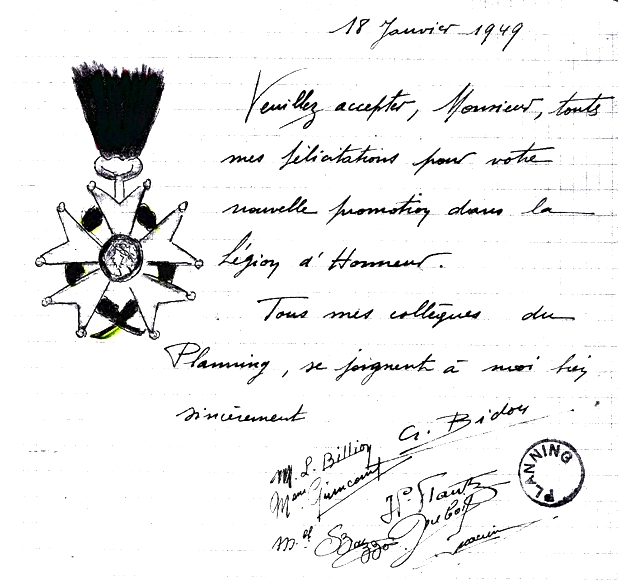 18 Janvier 1949
Veuillez accepter, Monsieur, touts
mes félicitations pour votre
nouvelle promotion dans la
Légion d'Honneur.
Tous mes collègues du
Planning, se joignent à moi bien
sincèrement
G. Bidou
M. L. Billion
Mme
Mel
Dubois
PLANNING